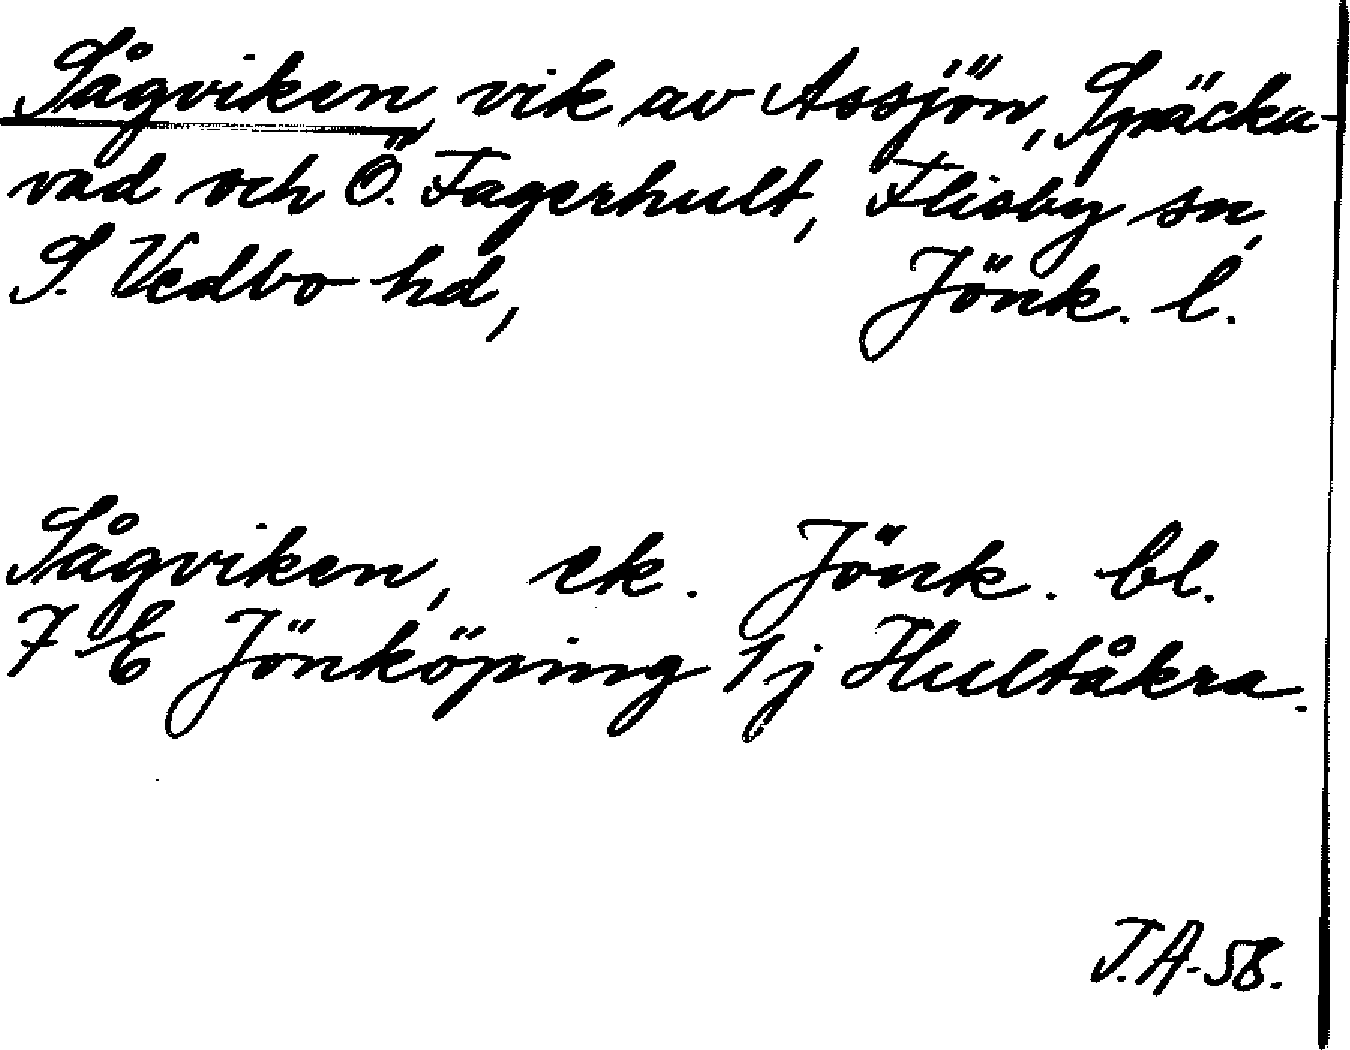 Sågviken, vik av Assjön, Späcka-
vad och Ö. Fagerhult, Flisby sn,
S. Vedbo hd, Jönk. l.
Sågviken, ek. Jönk. bl.
7 E Jönköping 1j Hultåkra.
J.A-58.